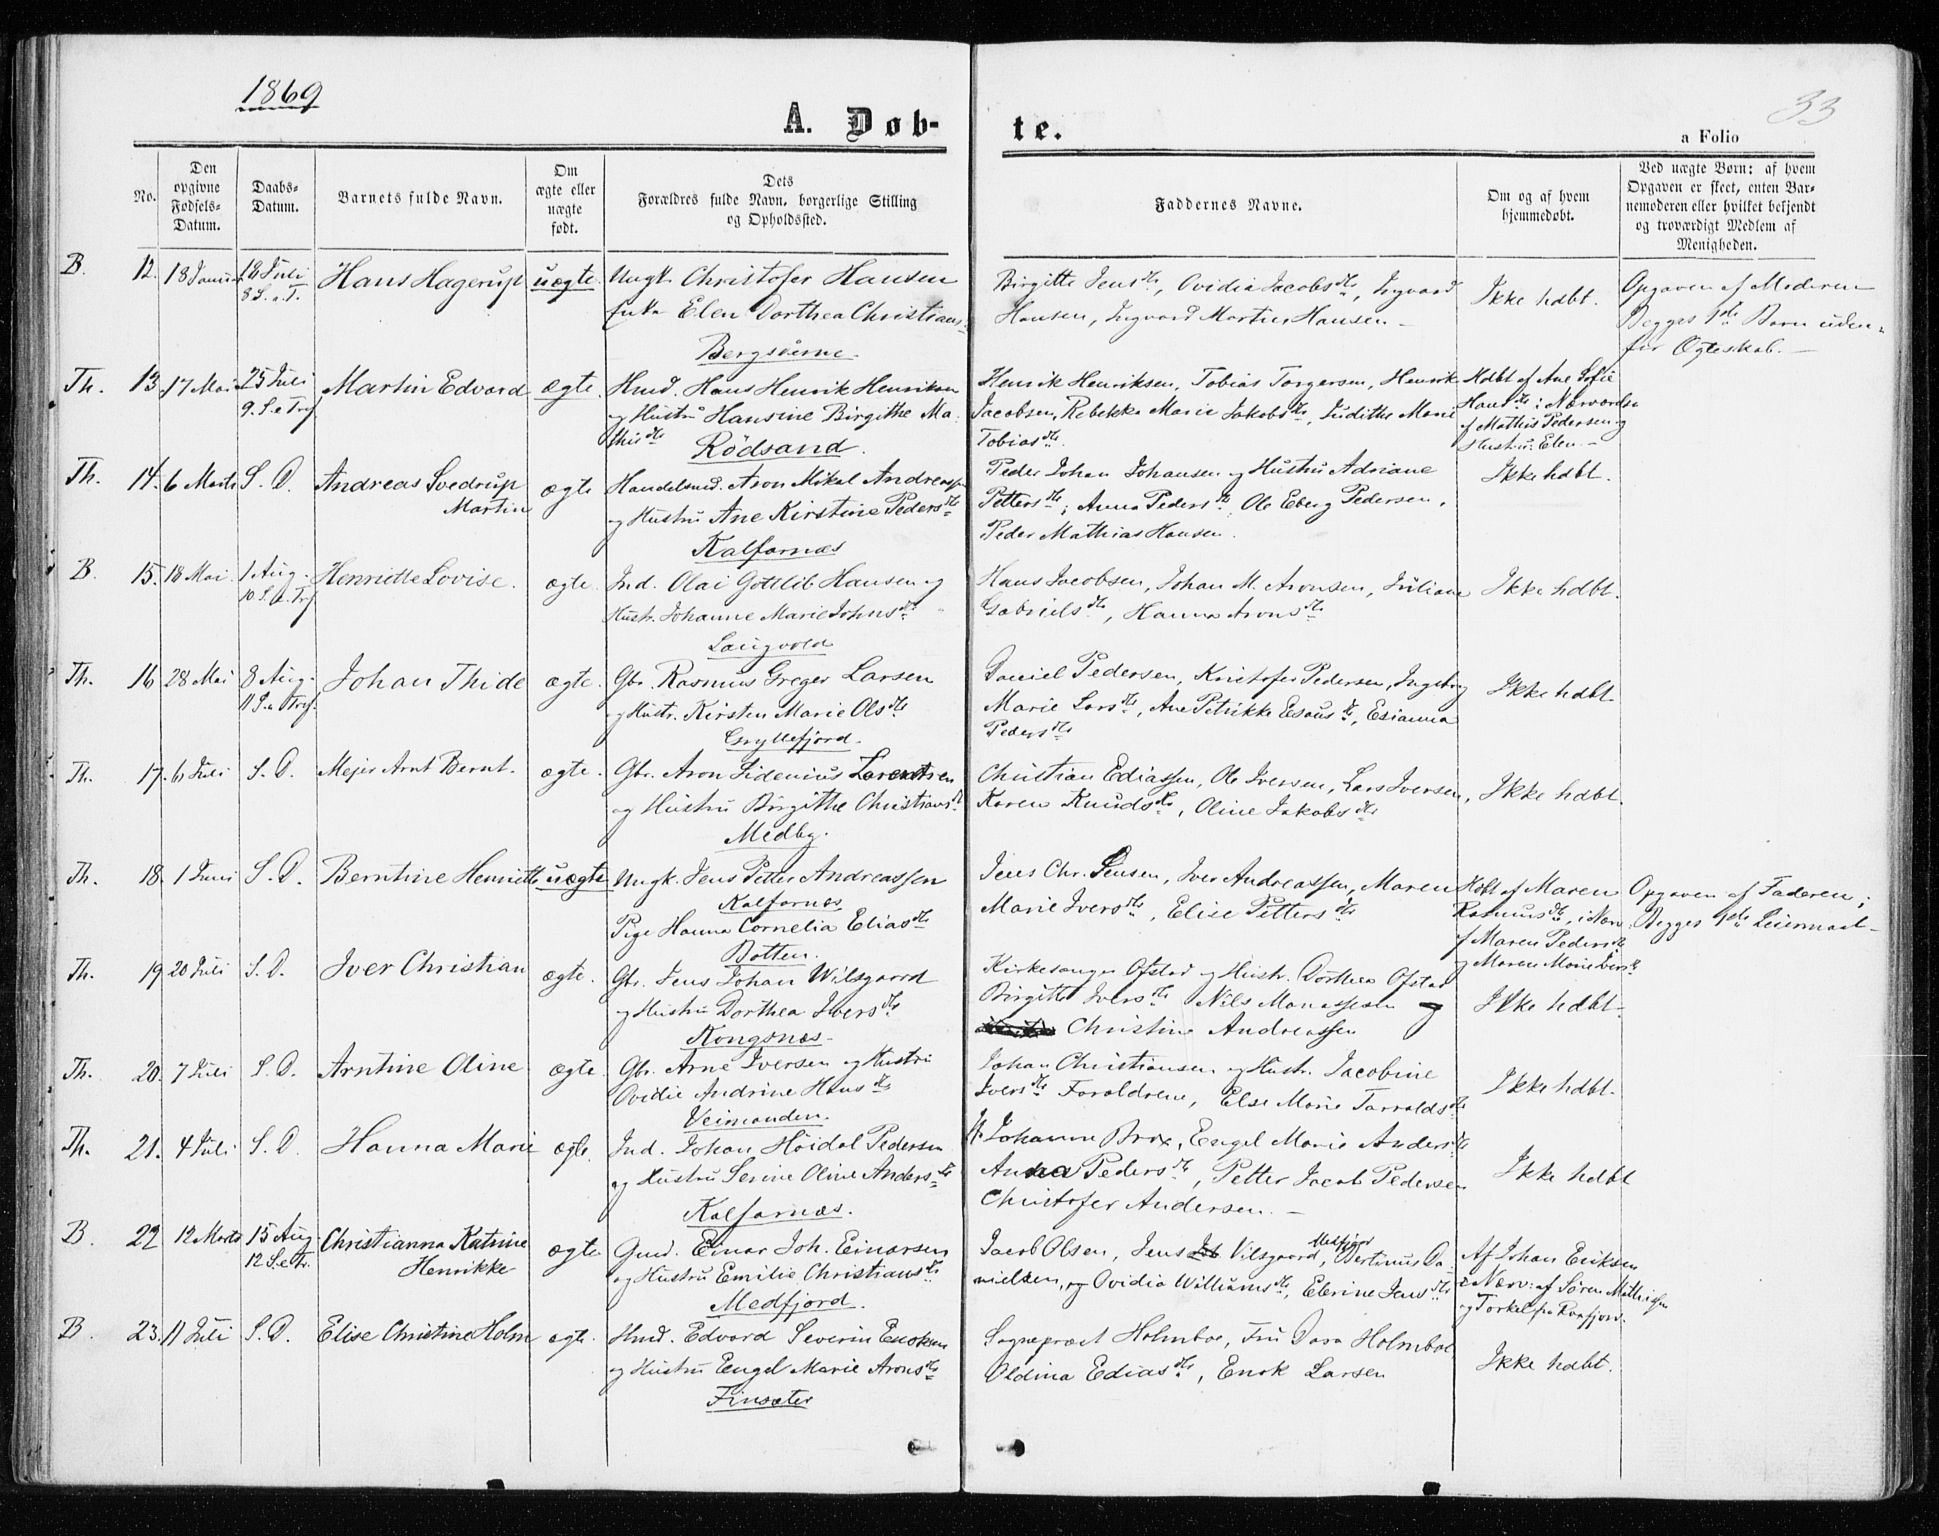 1869
33
A. Døb-
te.
a Folio
No.
Den opgivne Fødsels-Datum.
Daabs-Datum.
Barnets fulde Navn.
Om ægte eller uægte født.
Dets Forældres fulde Navn, borgerlige Stilling og Opholdssted.
Faddernes Navne.
Om og af hvem hjemmedøbt.
Ved uægte Børn: af hvem Opgaven er skeet, enten Barnemoderen eller hvilket bekjendt og troværdigt Medlem af Menigheden.
B. 12. 18 Januar 18 Juli 8 S. e. T. Hans Hagerup uægte. Ungk. Christofer Hansen
Enke Elen Dorthea Christians-
Bergsværne.
Birgitte Jensdtr, Ovidia Jacobsdtr, Ingvard
Hansen, Ingvard Martin Hansen -
Ikke hdbt.
Opgaven af Moderen
Begges 1ste Barn uden-
for Ægteskab. -
Th. 13. 17 Mai 25 Juli 9. S. e Tref Martin Edvard ægte. Hmd. Hans Henrik Henriksen
og Hustru Hansine Birgithe Ma-
thisdtr
Rödsand.
Henrik Henriksen, Tobias Torgersen, Henrik
Jacobsen, Rebekka Marie Jakobsdtr, Judithe Marie
Tobiasdtr.
Hdbt af Ane Sofie
Hansdtr i Nærværelse
af Mathis Pedersen og
Hustru Elen. -
Th. 14. 6 Marts S. D. Andreas Svedrup
Martin
ægte Handelsmd. Aron Mikal Andreassen
og Hustru Ane Kirstine Pedersdtr
Kalfarnæs
Peder Johan Johansen og Hustru Adriane
Pettersdtr; Anna Pedersdtr, Ole Eberg Pedersen,
Peder Mathias Hansen.
Ikke hdbt.
B. 15. 18 Mai. 1 Aug. 10 S. e. Tref Henriette Lovise. ægte. Ind. Olai Gottlib Hansen og
Hustr. Johanne Marie Johnsdtr
Laugvold
Hans Jacobsen, Johan M. Aronsen, Juliane
Gabrielsdtr, Hanna Aronsdtr
Ikke hdbt.
Th. 16 28 Mai 8 Aug. 11 S. e Tref. Johan Thide ægte. Gbr. Rasmus Greger Larsen
og Hustr. Kirsten Marie Olsdtr
Gryllefjord.
Daniel Pedersen, Kristofer Pedersen, Ingebrg
Marie Larsdtr, Ane Petrikke Esausdtr, Esianna
Pedersdtr
Ikke hdbt
Th. 17. 6 Juli S. D. Mejer Arnt Bernt. ægte. Gbr. Aron Sidenius Lorentsen
og Hustru Birgithe Christiansdtr
Medby.
Christian Ediassen, Ole Iversen, Lars Iversen,
Karen Knudsdtr, Oline Jakobsdtr
Ikke hdbt.
Th. 18. 1 Juni S. D. Berntine Henriette uægte Ungk. Jens Petter Andreassen
Kalfarnæs
Pige Hanna Cornelia Eliasdtr
Botten.
Jens Chr. Jensen, Iver Andreassen, Maren
Marie Iversdtr, Elise Pettersdtr
Hdbt af Maren
Rasmusdtr, i Nærv.
af Maren Pedersdtr
og Maren Marie Iversdtr
Opgaven af Faderen;
Begges 1ste Leiermaal-
Th. 19. 20 Juli S. D. Iver Christian ægte. Gbr. Jens Johan Wilsgaard
og Hustru Dorthea Iversdtr
Kongsnæs-
Kirkesanger Ofstad og Hustr. Dorthea Ofstad
Birgitte Iversdtr Nils Manassesen og
Christine Andreassen
Ikke hdbt.
Th. 20. 7 Juli S. D. Arntine Oline ægte Gbr. Arne Iversen og Hustru
Ovidie Andrine Hansdtr
Veimanden.
Johan Christiansen og Hustr. Jacobine
Iversdtr Forældrene, Else Marie Tarraldsdtr
Ikke hdbt.
Th. 21. 4 Juli S. D. Hanna Marie ægte. Ind. Johan Höidal Pedersen
og Hustru Serine Oline Andersdtr
Kalfarnæs.
Johanne Brox, Engel Marie Andersdtr
Anna Pedersdtr, Petter Jacob Pedersen
Christofer Andersen. -
Ikke hdbt
B. 22 12 Marts 15 Aug. 12 S. e Tr. Christianna Katrine
Henrikke
ægte Gmd. Einar Joh. Einarsen
og Hustru Emilie Christiansdtr
Medfjord.
Jacob Olsen, Jens Vilsgaard, Medfjord Bertinus Da-
nielsen, og Ovidia Williamsdtr, Elerine Jensdtr
Af Johan Eriksen
i Nærv: af Søren Mathisen
og Torkel fra Rvafjord.
B. 23. 11 Juli S. D. Elise Christine Holm ægte. Hmd. Edvard Severin Enoksen
og Hustru Engel Marie Aronsdtr
Finsæter
Sognepræst Holmboe, Fru Dara Holmboe
Oldina Ediasdtr, Enok Larsen
Ikke hdbt.